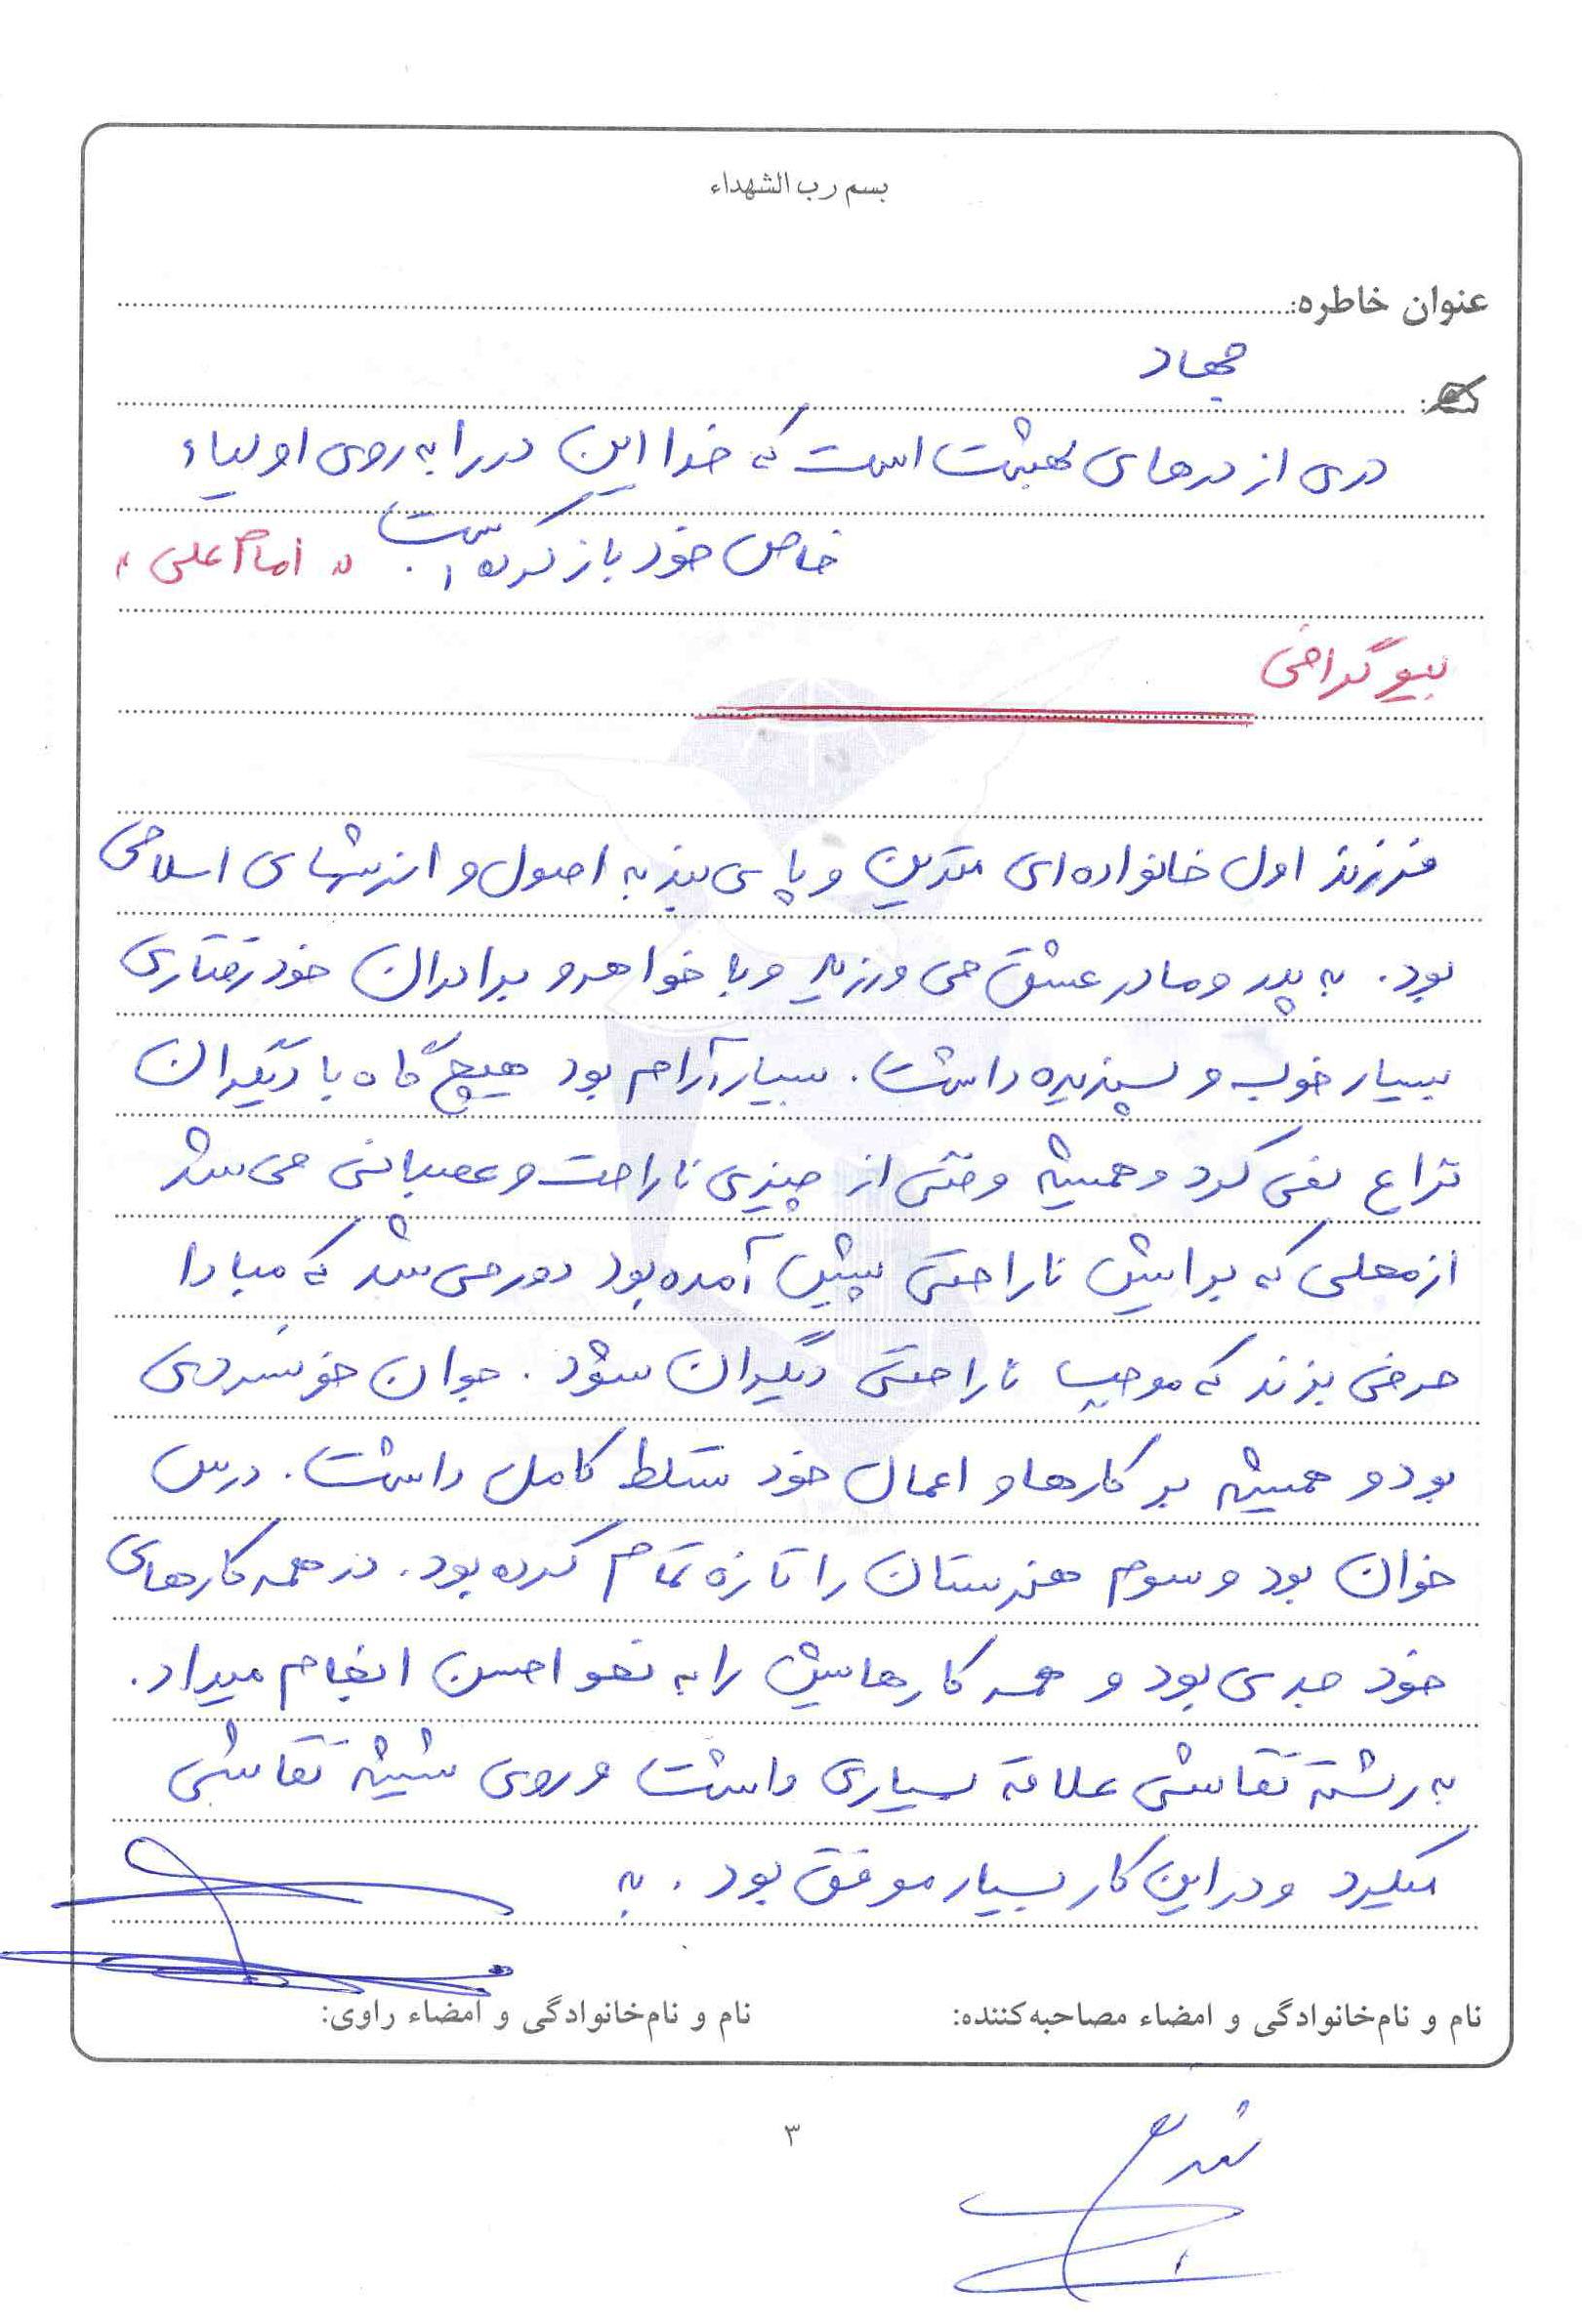 بسم رب الشهداء
عنوان خاطره:
جهاد
دری از درهای بهشت است که خدا این در را به روی اولیاء
خاص خود باز کرده است. « امام علی »
بیوگرافی
فرزند اول خانواده‌ای متدین و پای بند به اصول و ارزشهای اسلامی
بود. به پدر و مادر عشق می ورزید و با خواهر و برادران خود رفتاری
بسیار خوب و پسندیده داشت. بسیار آرام بود هیچ گاه با دیگران
نزاع نمی کرد و همیشه وقتی از چیزی ناراحت و عصبانی می شد
از محلی که برایش ناراحتی پیش آمده بود دور می شد که مبادا
حرفی بزند که موجب ناراحتی دیگران شود. جوان خونسردی
بود و همیشه بر کارها و اعمال خود تسلط کامل داشت. درس
خوان بود و سوم هنرستان را تازه تمام کرده بود. در همه کارهای
خود جدی بود و همه کارهایش را به نحو احسن انجام میداد.
به رشته نقاشی علاقه بسیاری داشت و روی شیشه نقاشی
میکرد و در این کار بسیار موفق بود. به
نام و نام‌خانوادگی و امضاء مصاحبه‌کننده: نام و نام‌خانوادگی و امضاء راوی:
۳